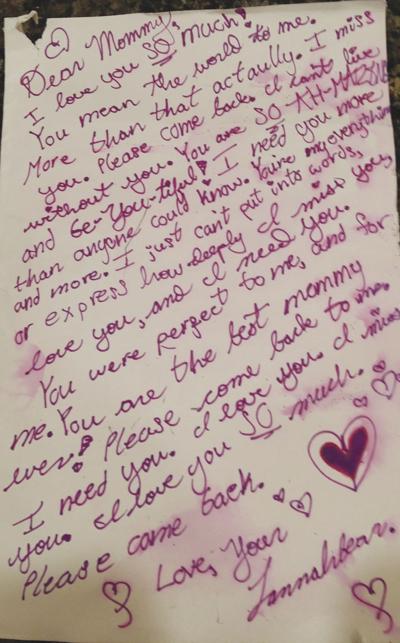 Dear Mommy,
I love you SO much!
You mean the world to me.
More than that actually. I miss
you. Please come back. I can't live
without you. You are SO AH-MAZING
and Be-You-tiful! I need you more
than anyone could know. You're my everything
and more. I just can't put into words,
or express how deeply I miss you,
love you, and I need you.
You were perfect to me, and for
me. You are the best mommy
ever! Please come back to me.
I need you. I love you. I miss
you. I love you SO much.
Please come back.
Love, Your
Jannahbear.